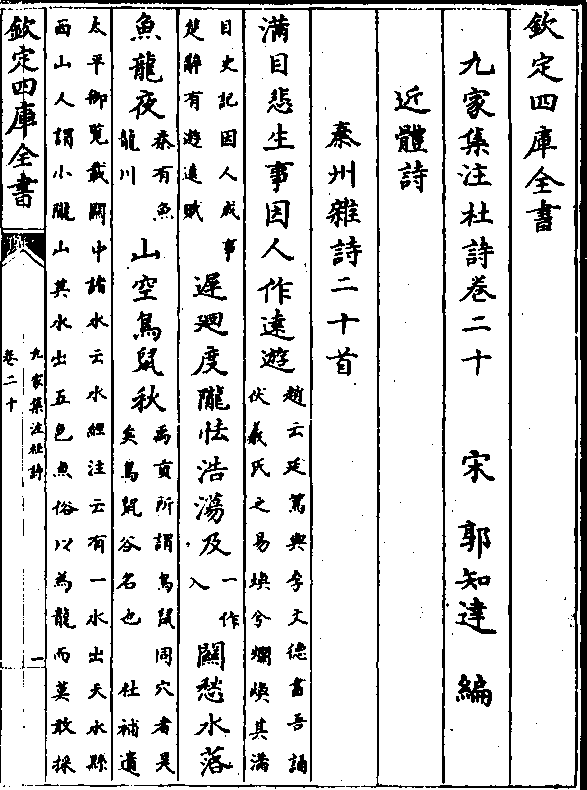 欽定四庫全書
九家集注杜詩卷二十
宋 郭知達 編
近體詩
秦州雜詩二十首
滿目悲生事因人作遠遊
趙云延篤與李文德書吾誦
伏羲氏之易煥兮爛煥其滿
目史記因人成事
楚辭有遊遠賦
遲廻度隴怯浩蕩及
一作
入
關愁水落
魚龍夜
秦有魚
龍川
山空鳥鼠秋
禹貢所謂鳥鼠同穴者是
矣鳥鼠谷名也 杜補遺
太平御覽載關中諸水云水經注云有一水出天水縣
西山人謂小隴山其水出五色魚俗以為龍而莫敢採
欽定四庫全書
九家集注杜詩
卷二十
一